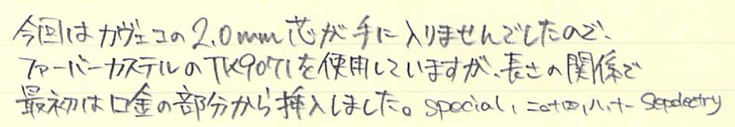 今回はカヴェコの2.0mm芯が手に入りませんでしたので、
ファーバーカステルのTK9071を使用していますが、長さの関係で
最初は口金の部分から挿入しました。special,